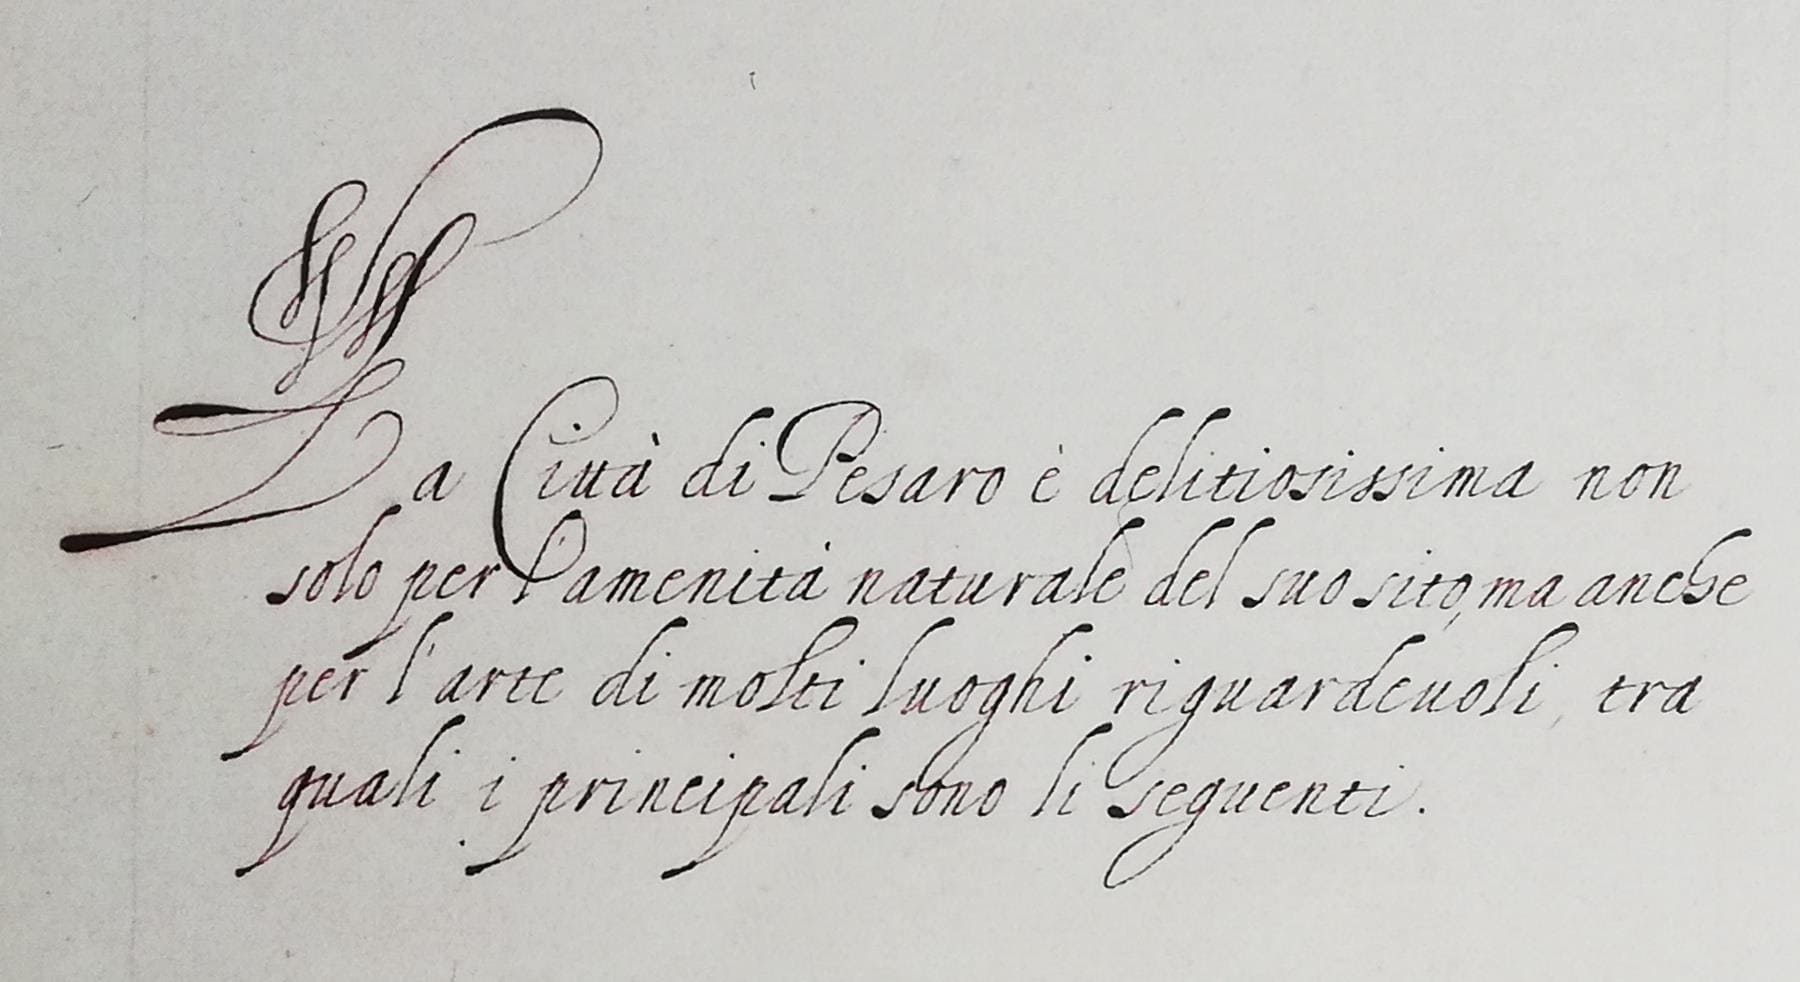 La Cittá di Pesaro è delitiosissima non
solo per l'amenitá naturale del suo sito, ma anche
per l'arte di molti luoghi riguardeuoli, tra
quali i principali sono li seguenti.